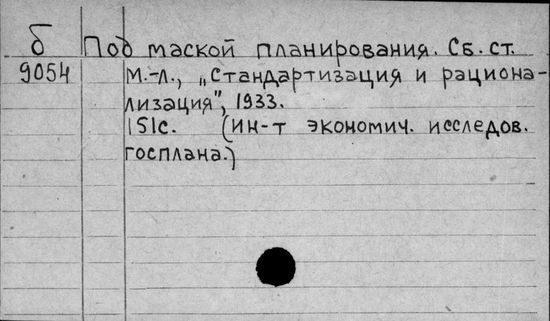 б Под маской планирования. Сб. ст.
9054 М.-Л., „Стандартизация и рациона-
лизация", 1933.
151с. (Ин-т экономич. исследов.
госплана.)